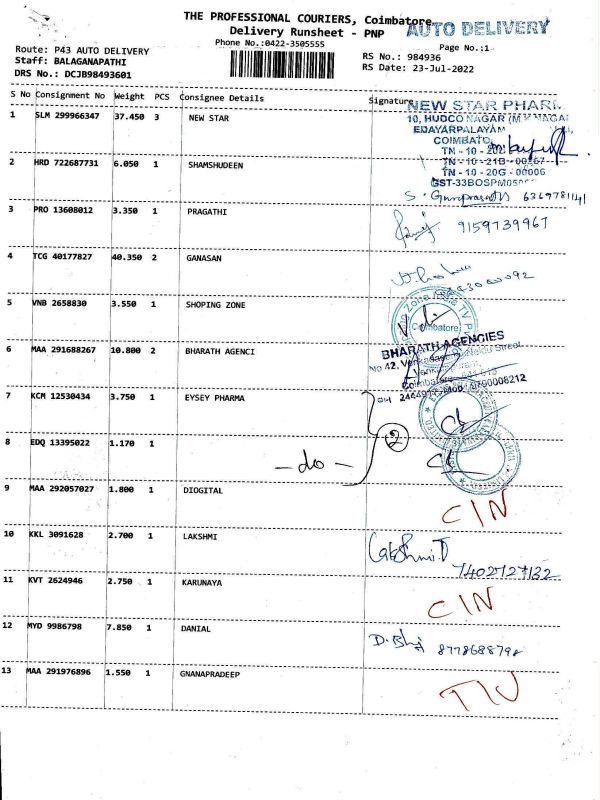 THE PROFESSIONAL COURIERS, Coimbatore
AUTO DELIVERY
Delivery Runsheet - PNP
Phone No.:0422-3505555
Page No.:1
Route: P43 AUTO DELIVERY
Staff: BALAGANAPATHI
DRS No.: DCJB98493601
RS No.: 984936
RS Date: 23-Jul-2022
S No Consignment No Weight PCS Consignee Details Signature
1 SLM 299966347 37.450 3 NEW STAR
NEW STAR PHAR
10, HUDCO NAGAR
EDAYARPALAYAM
COIMBATO
TN - 10 - 20
TN - 10 - 21B - 00267
TN - 10 - 20G - 00006
GST-33BOSPM05
2 HRD 722687731 6.050 1 SHAMSHUDEEN
S. Guruprasath 6369781141
3 PRO 13608012 3.350 1 PRAGATHI
9159739967
4 TCG 40177827 40.350 2 GANASAN
5 VNB 2658830 3.550 1 SHOPING ZONE
Coimbatore
6 MAA 291688267 10.800 2 BHARATH AGENCI
BHARATH AGENCIES
No 42,
7 KCM 12530434 3.750 1 EYSEY PHARMA
2
8 EDQ 13395022 1.170 1
- do -
9 MAA 292057027 1.800 1 DIOGITAL
CIN
10 KKL 3091628 2.700 1 LAKSHMI
Lakshmi.D
7402727132
11 KVT 2624946 2.750 1 KARUNAYA
CIN
12 MYD 9986798 7.850 1 DANIAL
8778688798
13 MAA 291976896 1.550 1 GNANAPRADEEP